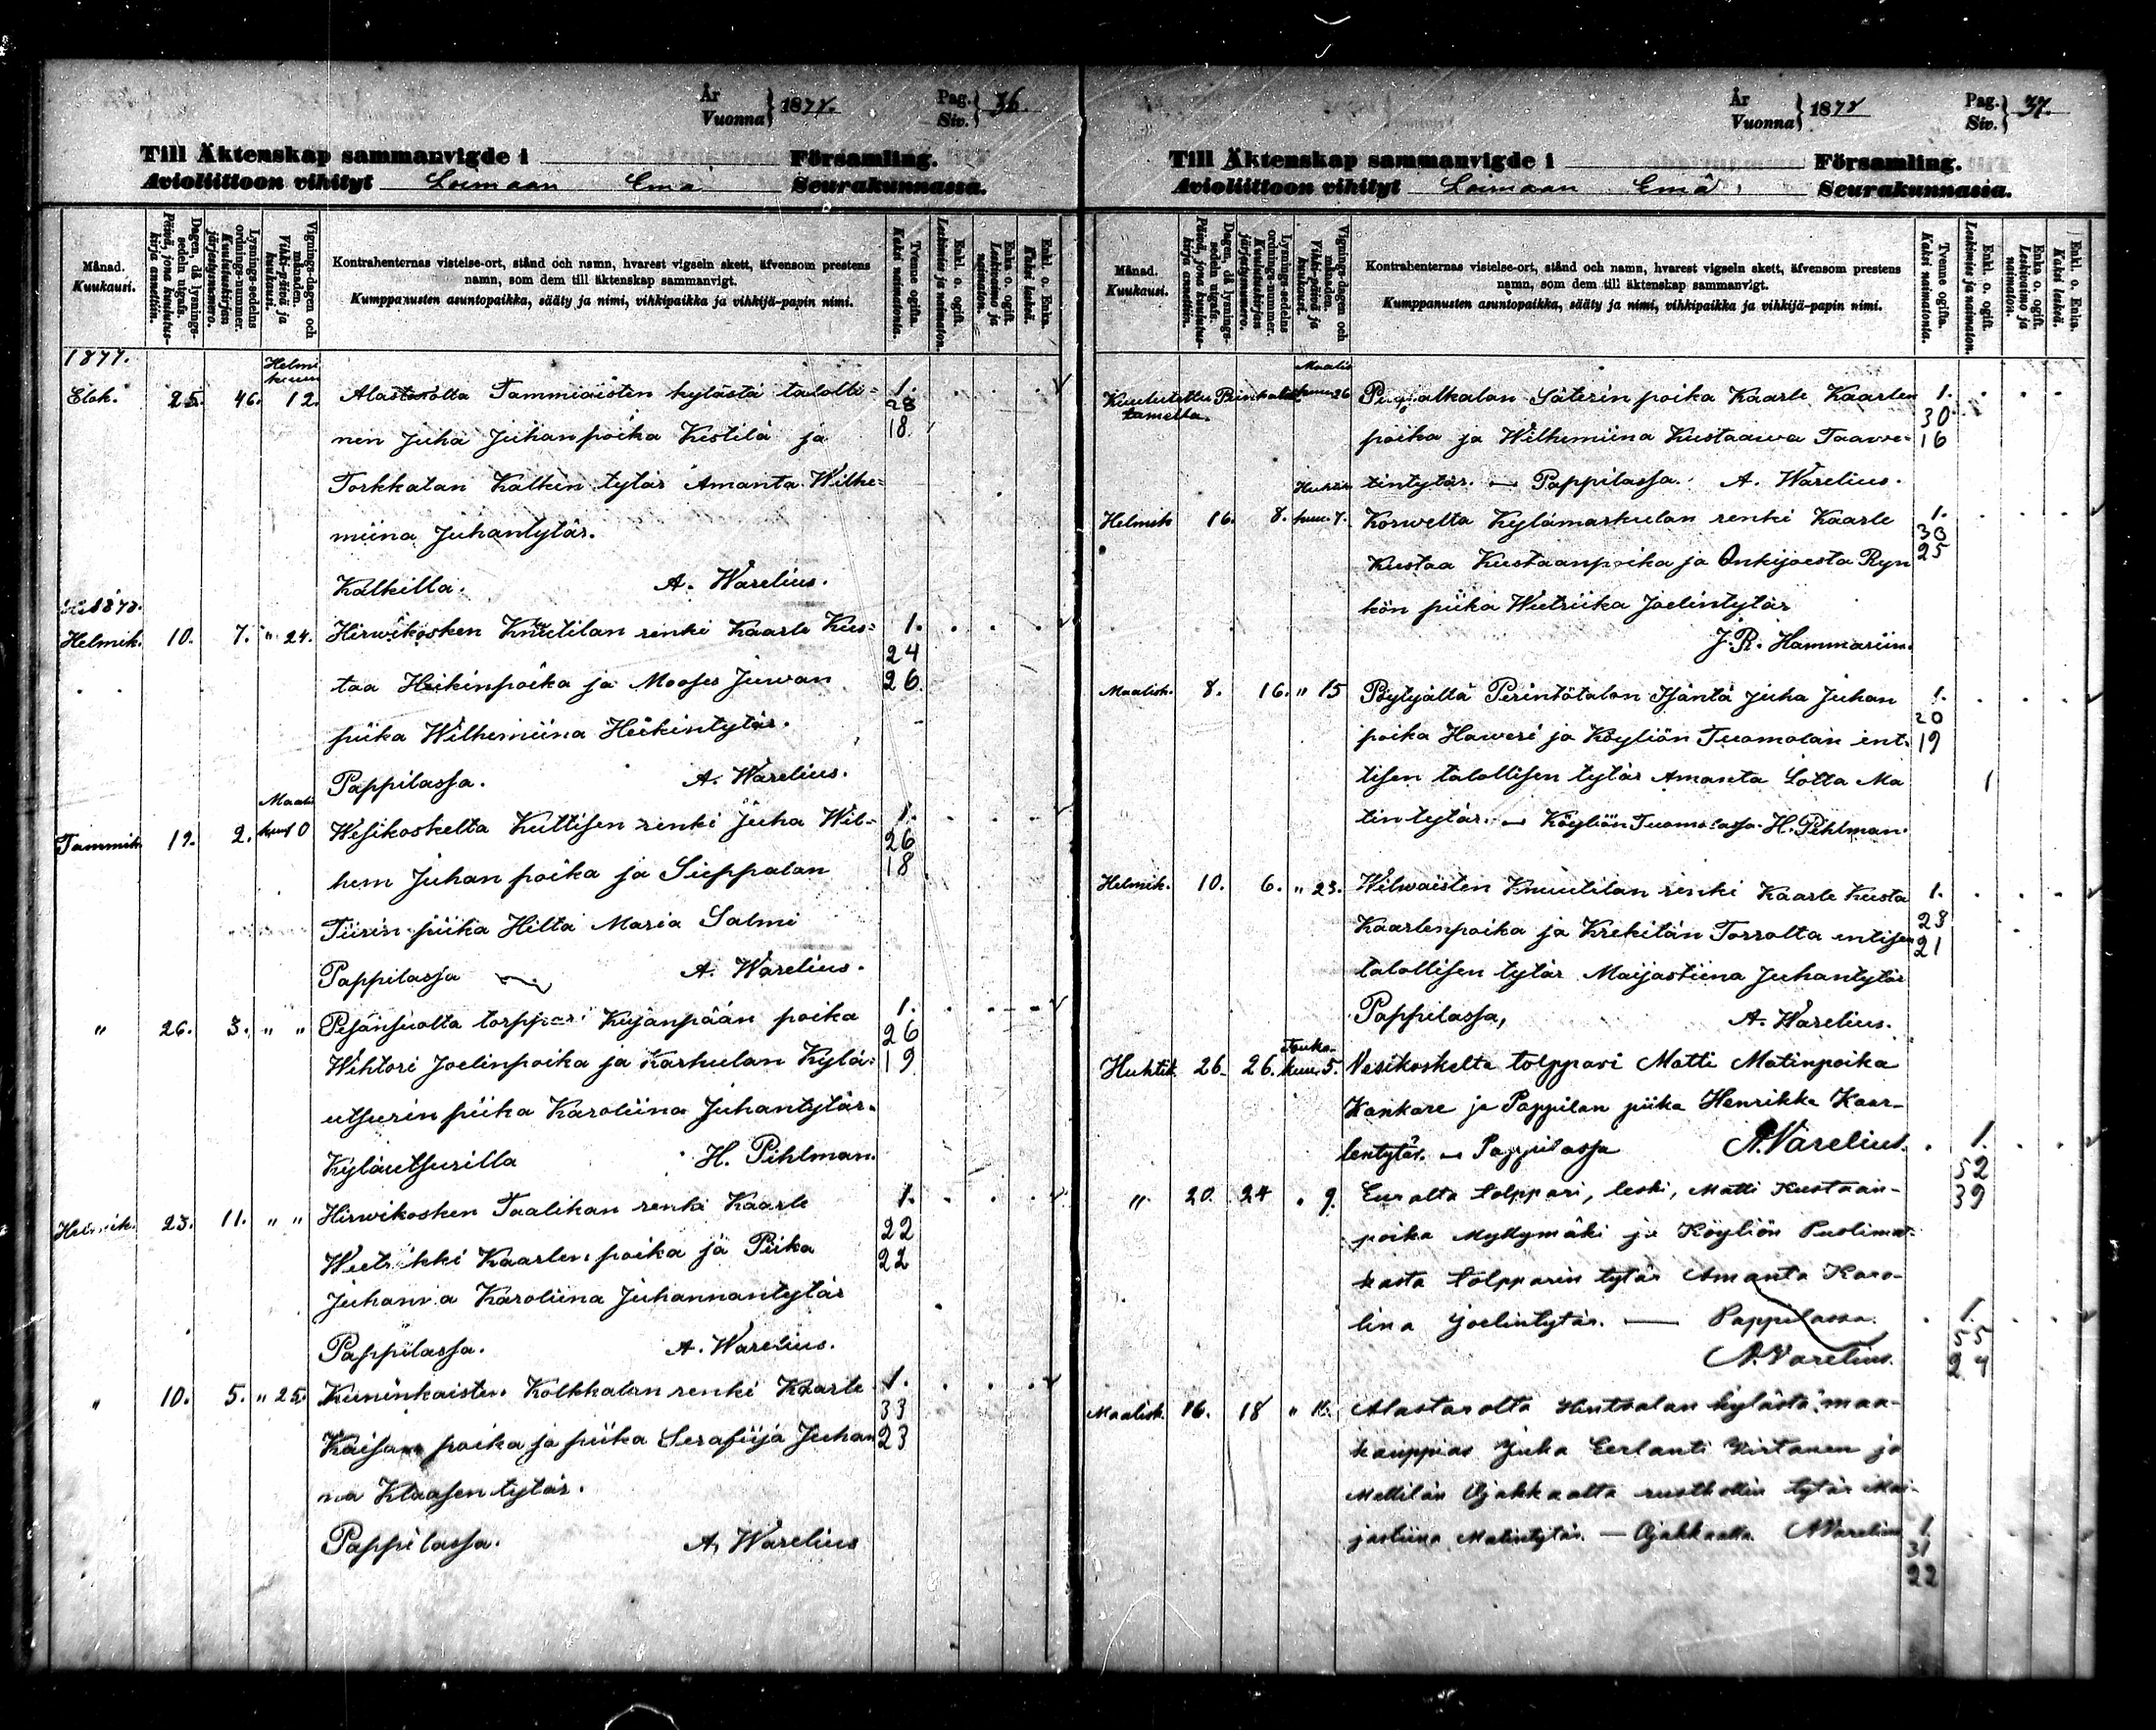 År
Vuonna } 1878. Pag.
Siv. } 36.
Till Äktenskap sammanvigde i Församling.
Avioliittoon vihityt Loimaan Emä Seurakunnassa.
Månad.
Kuukausi.
Dagen, då lysnings-sedeln utgafs.
Päivä, jona kuulutus-kirja annettiin.
Lysnings-sedelns ordnings-nummer.
Kuulutuskirjan järjestysnumero.
Vignings-dagen och månaden.
Vihki-päivä ja kuukausi.
Kontrahenternas vistelse-ort, stånd och namn, hvarest vigseln skett, äfvensom prestens
namn, som dem till äktenskap sammanvigt.
Kumppanusten asuntopaikka, sääty ja nimi, vihkipaikka ja vihkijä-papin nimi.
Tvenne ogifta.
Kaksi naimatonta.
Enkl. o. ogift.
Leskimies ja naimaton.
Enka o. ogift.
Leskivaimo ja naimaton.
Enkl. o. Enka.
Kaksi leskeä.
1877. Helmi
kuun
Elok. 25. 46. 12. Alastarolta Tammiaisten kylästä talolli- 1.
28
nen Juha Juhanpoika Kestilä ja 18.
Torkkalan Kalkin tytär Amanta Wilhe-
miina Juhantytär.
Kalkilla. A. Warelius.
1878.
Helmik. 10. 7. " 24. Hirwikosken Knuutilan renki Kaarle Kus- 1.
24
taa Heikinpoika ja Mooses Juwan 26
piika Wilhemiina Heikintytär.
Pappilassa. A. Warelius.
Maalis
Tammik. 19. 2. kuu 10 Wesikoskelta Kuttisen renki Juha Wil- 1.
26
hem Juhan poika ja Sieppalan 18
Tiirin piika Hilta Maria Salmi
Pappilassa A. Warelius.
" 26. 3. " " Pesänsuolta torppari Kujanpään poika 1.
26
Wihtori Joelinpoika ja Karhulan Kylä- 19
utsurin piika Karoliina Juhantytär.
Kyläutsurilla H. Pihlman.
Helmik. 23. 11. " " Hirwikosken Taalikan renki Kaarle 1.
22
Wietrikki Kaarlenpoika ja Piika 22
Juhanna Karoliina Juhannantytär
Pappilassa. A. Warelius.
" 10. 5. " 25. Kuninkaisten Kolkkalan renki Kaarle 1.
33
Kaisan poika ja piika Serafiija Juhan 23
na Klaasentytär.
Pappilassa. A. Warelius
År
Vuonna } 1878 Pag.
Siv. } 37.
Till Äktenskap sammanvigde i Församling.
Avioliittoon vihityt Loimaan Emä Seurakunnassa.
Månad.
Kuukausi.
Dagen, då lysnings-sedeln utgafs.
Päivä, jona kuulutus-kirja annettiin.
Lysnings-sedelns ordnings-nummer.
Kuulutuskirjan järjestysnumero.
Vignings-dagen och månaden.
Vihki-päivä ja kuukausi.
Kontrahenternas vistelse-ort, stånd och namn, hvarest vigseln skett, äfvensom prestens
namn, som dem till äktenskap sammanvigt.
Kumppanusten asuntopaikka, sääty ja nimi, vihkipaikka ja vihkijä-papin nimi.
Tvenne ogifta.
Kaksi naimatonta.
Enkl. o. ogift.
Leskimies ja naimaton.
Enka o. ogift.
Leskivaimo ja naimaton.
Enkl. o. Enka.
Kaksi leskeä.
Maalis
Kuulutettu kuun 26 Säterin poika Kaarle Kaarlen 1.
30
poika ja Wilhemiina Kustaawa Taawe- 16
Huhti tintytär. — Pappilassa. A. Warelius.
Helmik 16. 8. kuu. 7. Korwelta Kylämaskulan renki Kaarle 1.
30
Kustaa Kustaanpoika ja Onkijoesta Ryn 25
kön piika Wietriika Joelintytär
J. R. Hammariin.
Maalisk. 8. 16. " 15 Pöytyältä Perintötalon Isäntä Juha Juhan 1.
20
poika Haweri ja Köyliön Tuomolan ent. 19
tisen talollisen tytär Amanta Lotta Ma 1
tintytär. — Köyliön Tuomolassa. H. Pihlman.
Helmik. 10. 6. " 23. Wilwaisten Knuutilan renki Kaarle Kusta 1.
23
Kaarlenpoika ja Krekilän Torrolta entisen 21
talollisen tytär Maijastiina Juhantytär
Pappilassa, A. Warelius.
Touko-
Huhtik 26. 26. kuu. 5. Vesikoskelta tolppari Matti Matinpoika
Kankare ja Pappilan piika Henrikka Kaar-
lentytär. — Pappilassa A. Varelius. 1.
52
" 20. 24 " 9. Euralta tolppari, leski, Matti Kustaan- 39
poika Myllymäki ja Köyliön Puolimat-
kasta tolpparin tytär Amanta Karo-
lina Joelintytär. — Pappilassa. 1.
55
A. Varelius. 24
Maalisk. 16. 18 " 16. Alastarolta Hintsalan kylästä maa-
kauppias Juha Eerlanti Virtanen ja
Mellilän Ajakkaalta rusthollin tytär Mai-
jastiina Matintytär. — Ajakkaalla A Varelius 1.
31
22